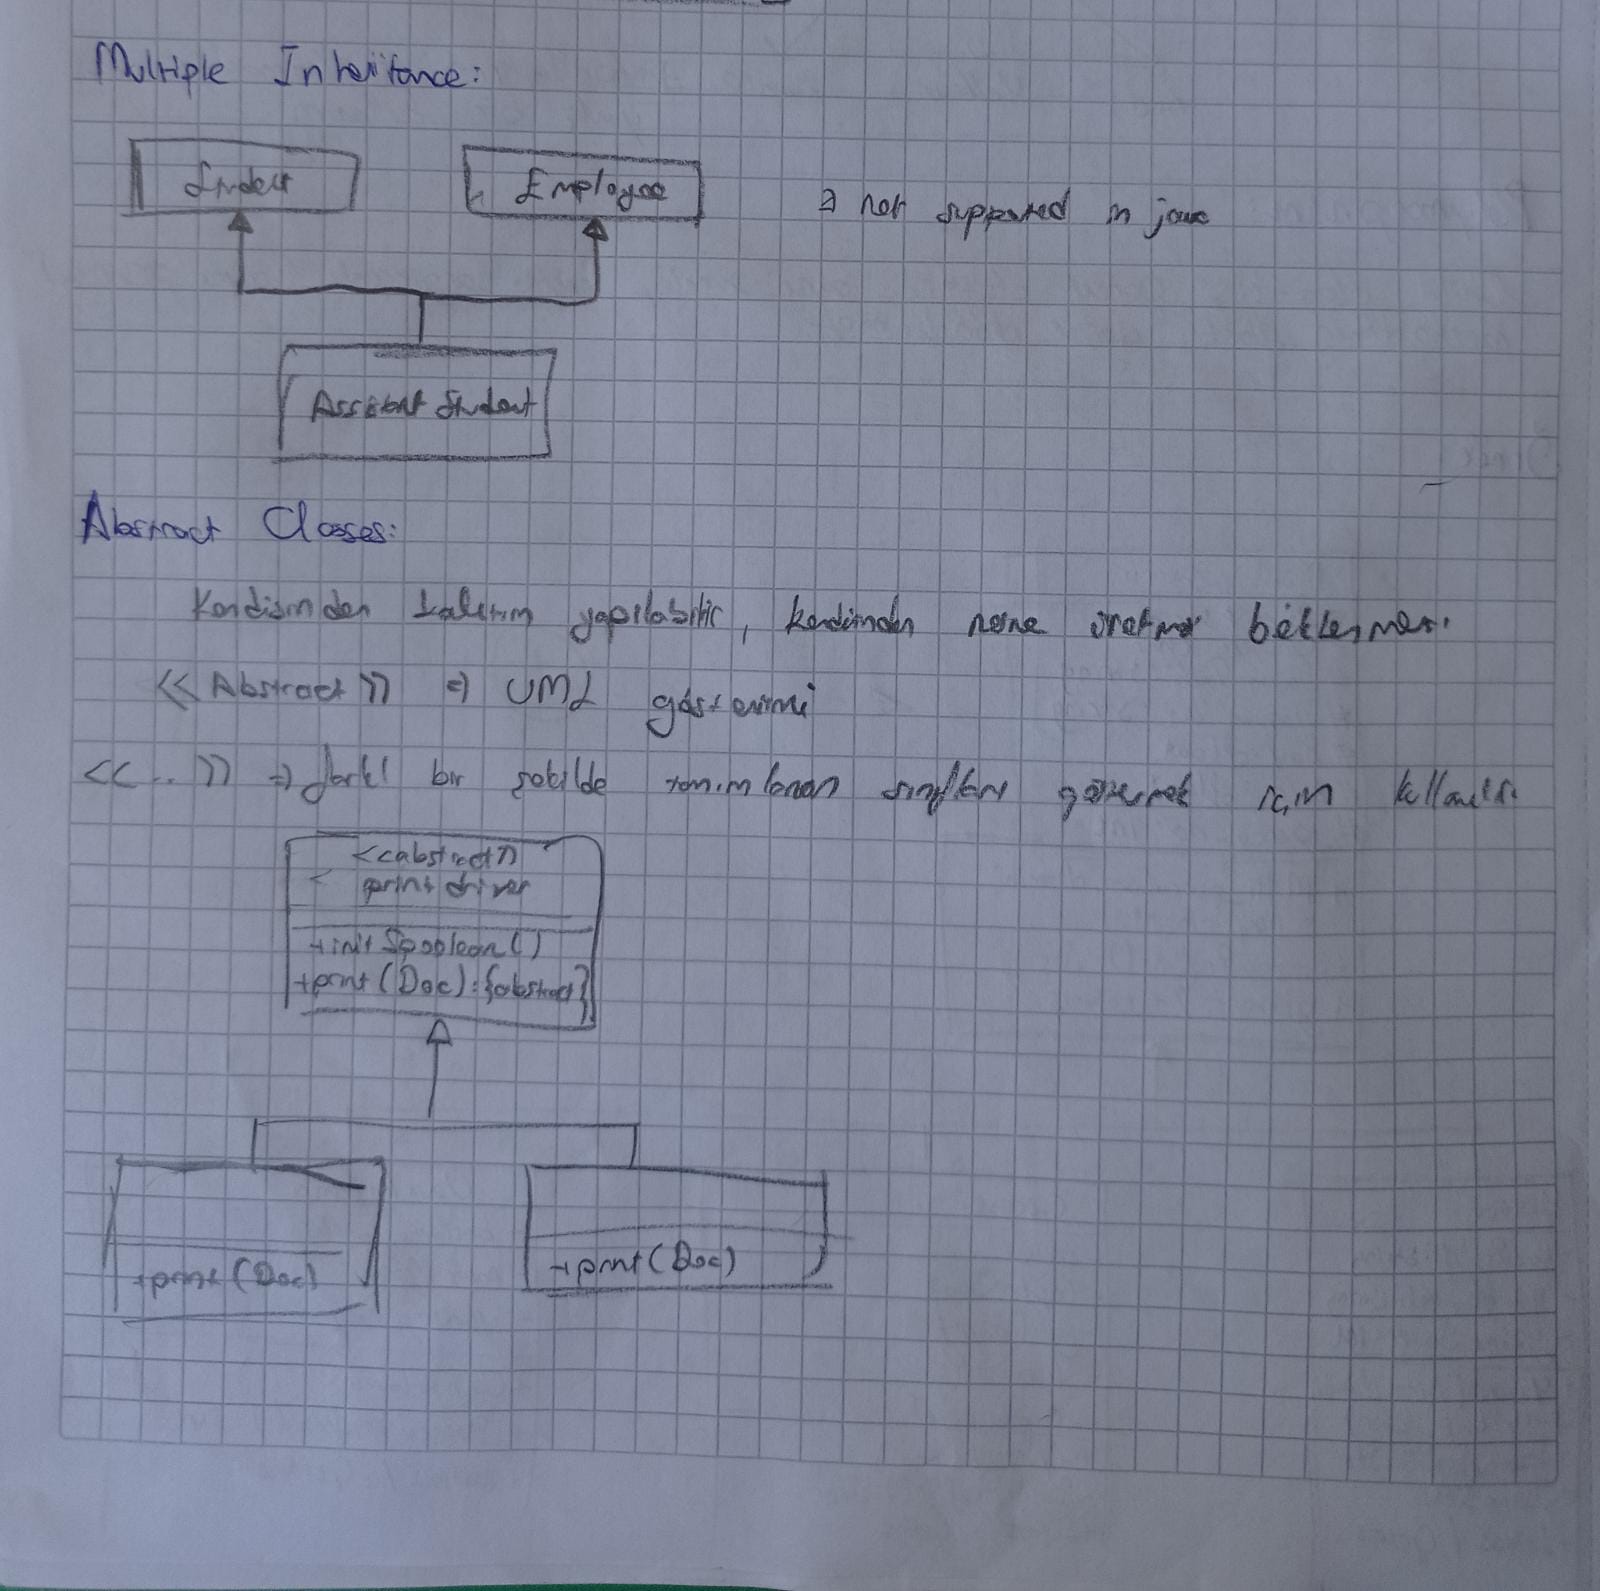 Multiple Inheritance:
Student
Employee
⇒ not supported in java
Assistant Student
Abstract Classes:
Kendisinden kalıtım yapılabilir, kendinden nesne üretmesi beklenmez.
<<Abstract>> ⇒ UML gösterimi
<<..>> ⇒ farklı bir şekilde tanımlanan sınıfları göstermek için kullanılır.
<<abstract>>
print driver
+init Spoolean()
+print(Doc):{abstract}
+print(Doc)
+print(Doc)